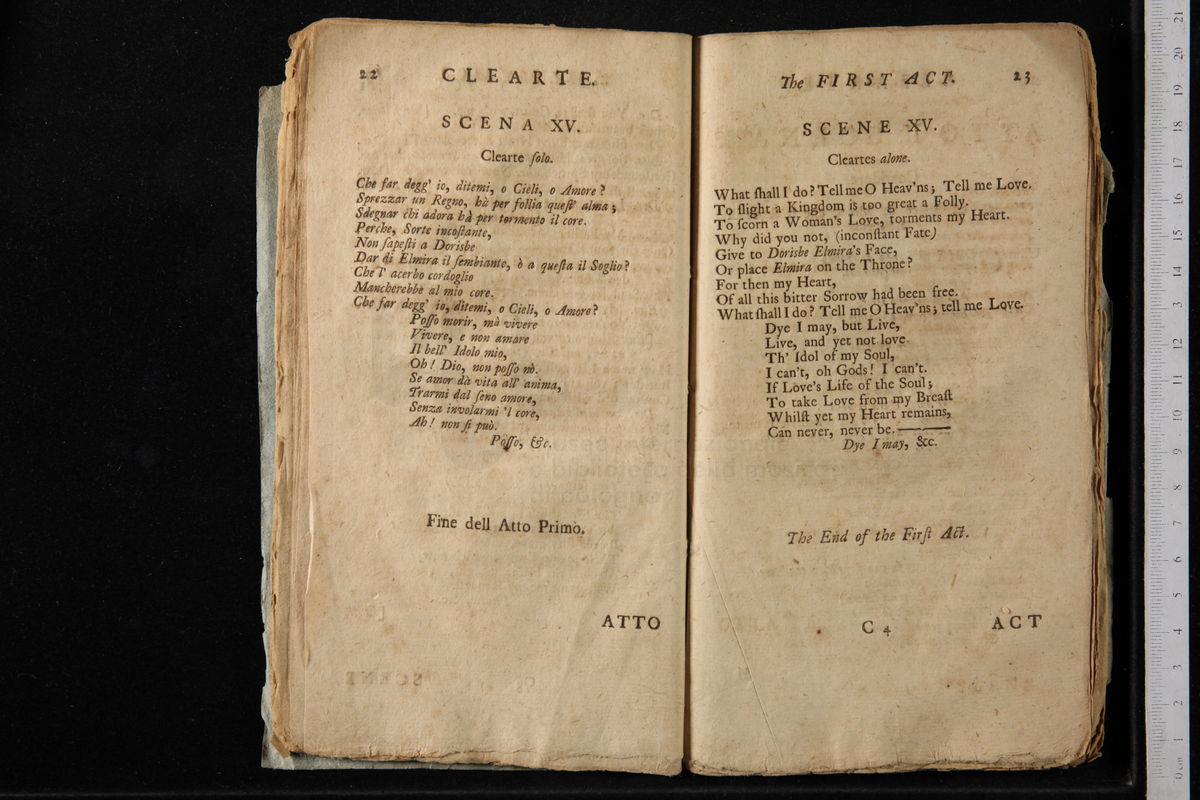 22 CLEARTE.
SCENA XV.
Clearte ſolo.
Che far degg' io, ditemi, o Cieli, o Amore?
Sprezzar un Regno, hà per follia queſt' alma;
Sdegnar chi adora hà per tormento il core.
Perche, Sorte incoſtante,
Non ſapeſti a Dorisbe
Dar di Elmira il ſembiante, ò a queſta il Soglio?
Che l' acerbo cordoglio
Mancherebbe al mio core.
Che far degg' io, ditemi, o Cieli, o Amore?
Poſſo morir, mà vivere
Vivere, e non amare
Il bell' Idolo mio,
Oh! Dio, non poſſo nò.
Se amor dà vita all' anima,
Trarmi dal ſeno amore,
Senza involarmi 'l core,
Ah! non ſi può.
Poſſo, &c.
Fine dell Atto Primo.
ATTO
The FIRST ACT. 23
SCENE XV.
Cleartes alone.
What ſhall I do? Tell me O Heav'ns; Tell me Love.
To ſlight a Kingdom is too great a Folly.
To ſcorn a Woman's Love, torments my Heart.
Why did you not, (inconſtant Fate)
Give to Dorisbe Elmira's Face,
Or place Elmira on the Throne?
For then my Heart,
Of all this bitter Sorrow had been free.
What ſhall I do? Tell me O Heav'ns; tell me Love.
Dye I may, but Live,
Live, and yet not love
Th' Idol of my Soul,
I can't, oh Gods! I can't.
If Love's Life of the Soul;
To take Love from my Breaſt
Whilſt yet my Heart remains,
Can never, never be.———
Dye I may, &c.
The End of the Firſt Act.
C 4 ACT
0 cm 1 2 3 4 5 6 7 8 9 10 11 12 13 14 15 16 17 18 19 20 21